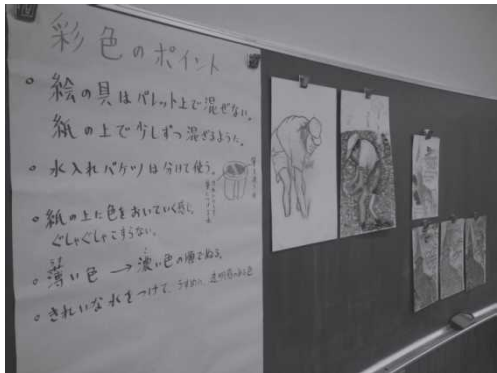 彩色のポイント
。絵の具はパレット上で混ぜない。
紙の上で少しずつ混ざるように。
。水入れバケツは分けて使う。
。紙の上に色をおいていく感じ。
ぐしゃぐしゃこすらない。
。薄い色→濃い色の順でぬる。
。きれいな水をつけて、うすめに、透明感のある色